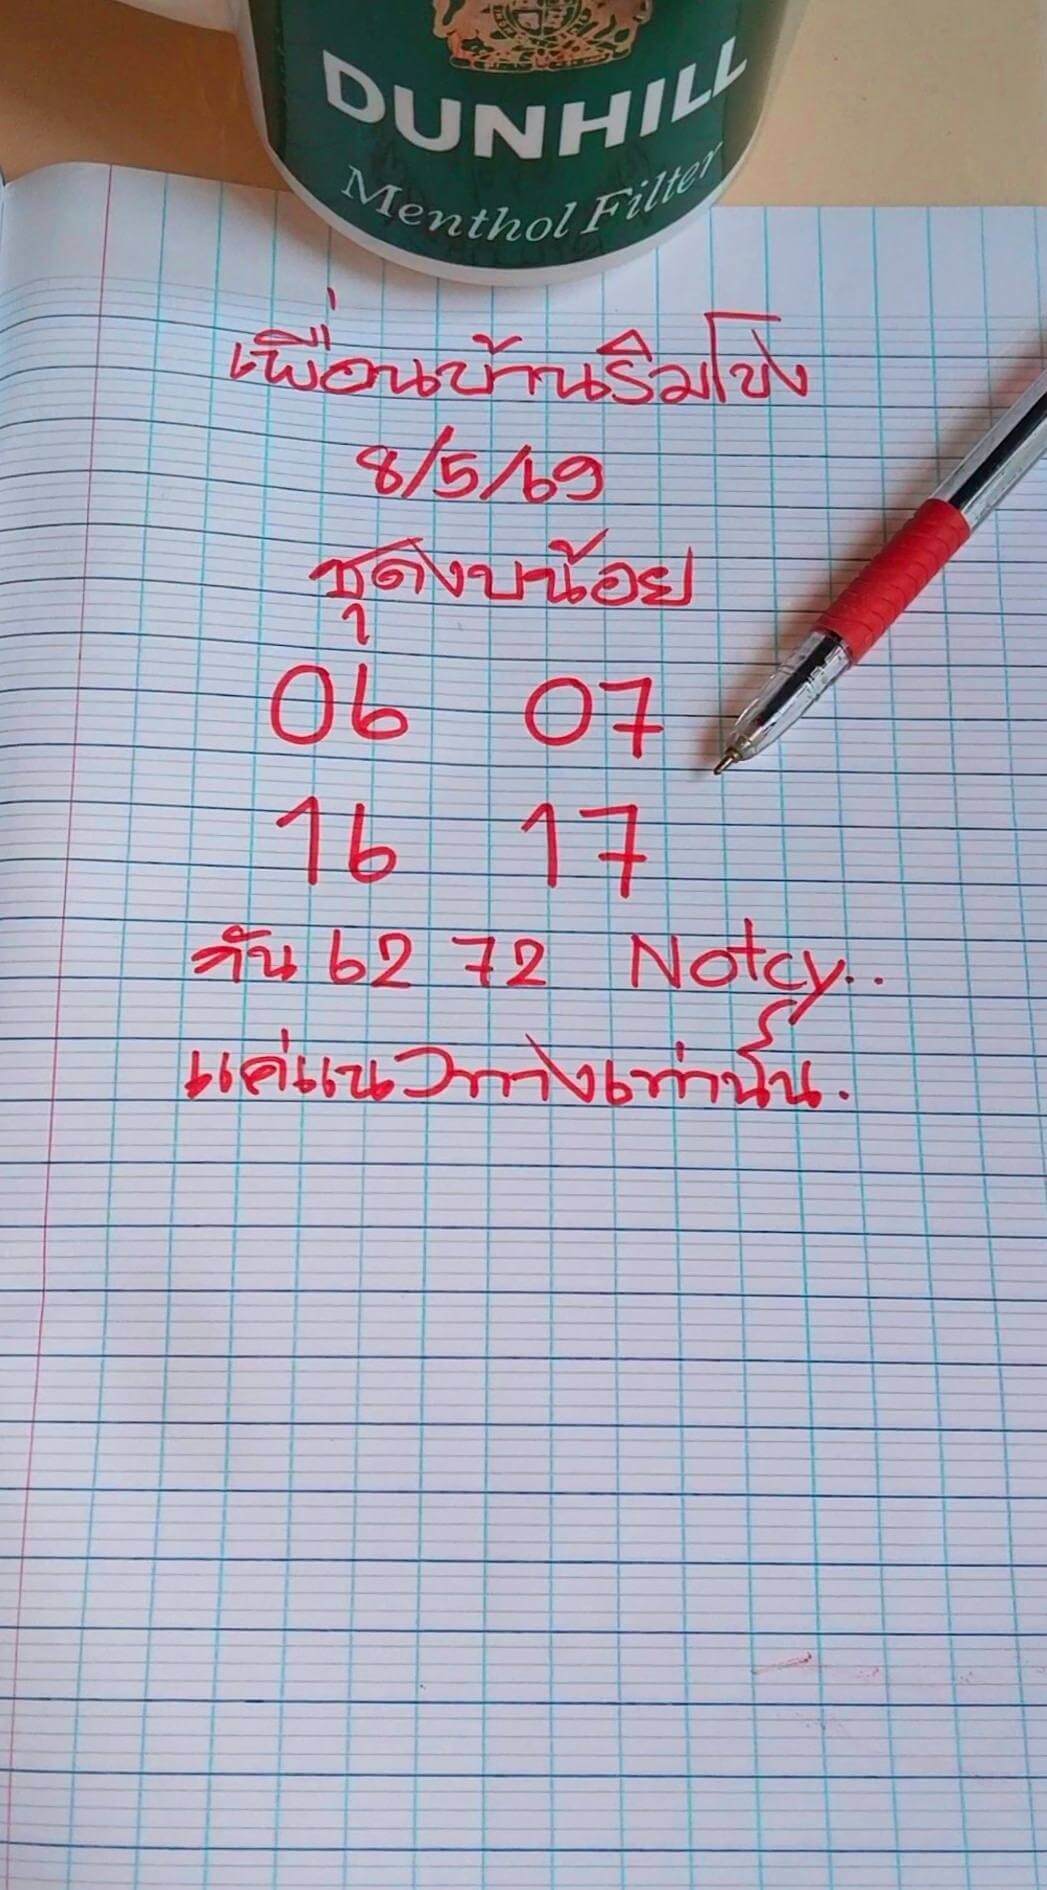 DUNHILL
Menthol Filter
เพื่อนบ้านริมโขง
8/5/69
ชุดงบน้อย
06 07
16 17
กัน 62 72 Notcy..
แค่แนวทางเท่านั้น.